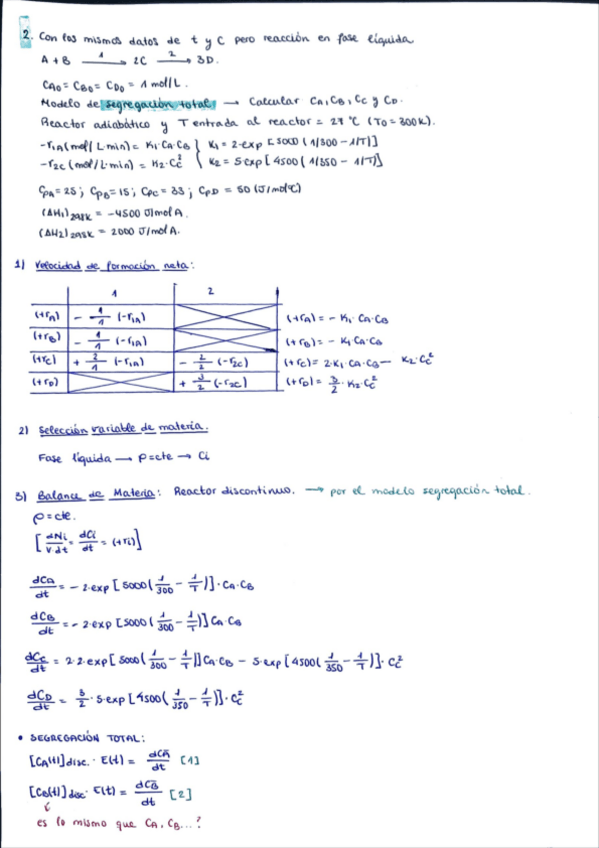 2. Con los mismos datos de t y C pero reacción en fase líquida
A + B —1→ 2C —2→ 3D.
CA0 = CB0 = CD0 = 1 mol/L.
Modelo de segregación total → Calcular CA, CB, CC y CD.
Reactor adiabático y T entrada al reactor = 27 °C (T0 = 300K).
-r1A (mol/L·min) = K1·CA·CB { K1 = 2·exp [5000 (1/300 - 1/T)]
-r2C (mol/L·min) = K2·CC² { K2 = 5·exp [4500 (1/350 - 1/T)]
CpA = 25 ; CpB = 15 ; CpC = 35 ; CpD = 50 (J/mol°C)
(ΔH1)298K = -4500 J/mol A.
(ΔH2)298K = 2000 J/mol A.
1) Velocidad de formación neta:
1 2
(+rA) - 1/1 (-r1A) (+rA) = - K1·CA·CB
(+rB) - 1/1 (-r1A) (+rB) = - K1·CA·CB
(+rC) + 2/1 (-r1A) - 2/2 (-r2C) (+rC) = 2·K1·CA·CB - K2·CC²
(+rD) + 3/2 (-r2C) (+rD) = 3/2·K2·CC²
2) Selección variable de materia.
Fase líquida → ρ=cte → Ci
3) Balance de Materia: Reactor discontinuo. → por el modelo segregación total.
ρ=cte.
[dNi/V·dt = dCi/dt = (+ri)]
dCA/dt = - 2·exp [5000 (1/300 - 1/T)]·CA·CB
dCB/dt = - 2·exp [5000 (1/300 - 1/T)] CA·CB
dCC/dt = 2·2·exp [5000 (1/300 - 1/T)] CA·CB - 5·exp [4500 (1/350 - 1/T)]·CC²
dCD/dt = 3/2·5·exp [4500 (1/350 - 1/T)]·CC²
• SEGREGACIÓN TOTAL:
[CA(t)]disc.·E(t) = dC̄A/dt [1]
[CB(t)]disc·E(t) = dC̄B/dt [2]
es lo mismo que CA, CB...?